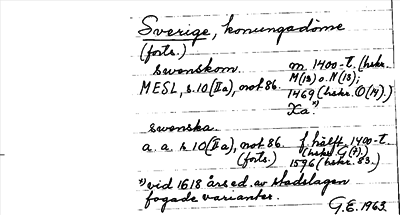 Sverige, konungadöme
(forts.)
swenskom. m. 1400-t. (hskr.
MESL, s. 10 (IIa), not 86. M(13) o. N(13);
1469 (hskr. O(14).)
Xa.*)
swenska
a. a. s. 10 (IIa), not 86. f. hälft. 1400-t.
(forts.) (hskr. G(7).)
1596 (hskr. 83.)
*) vid 1618 årsed. av stadslagen
fogade varianter.
G.E. 1963.